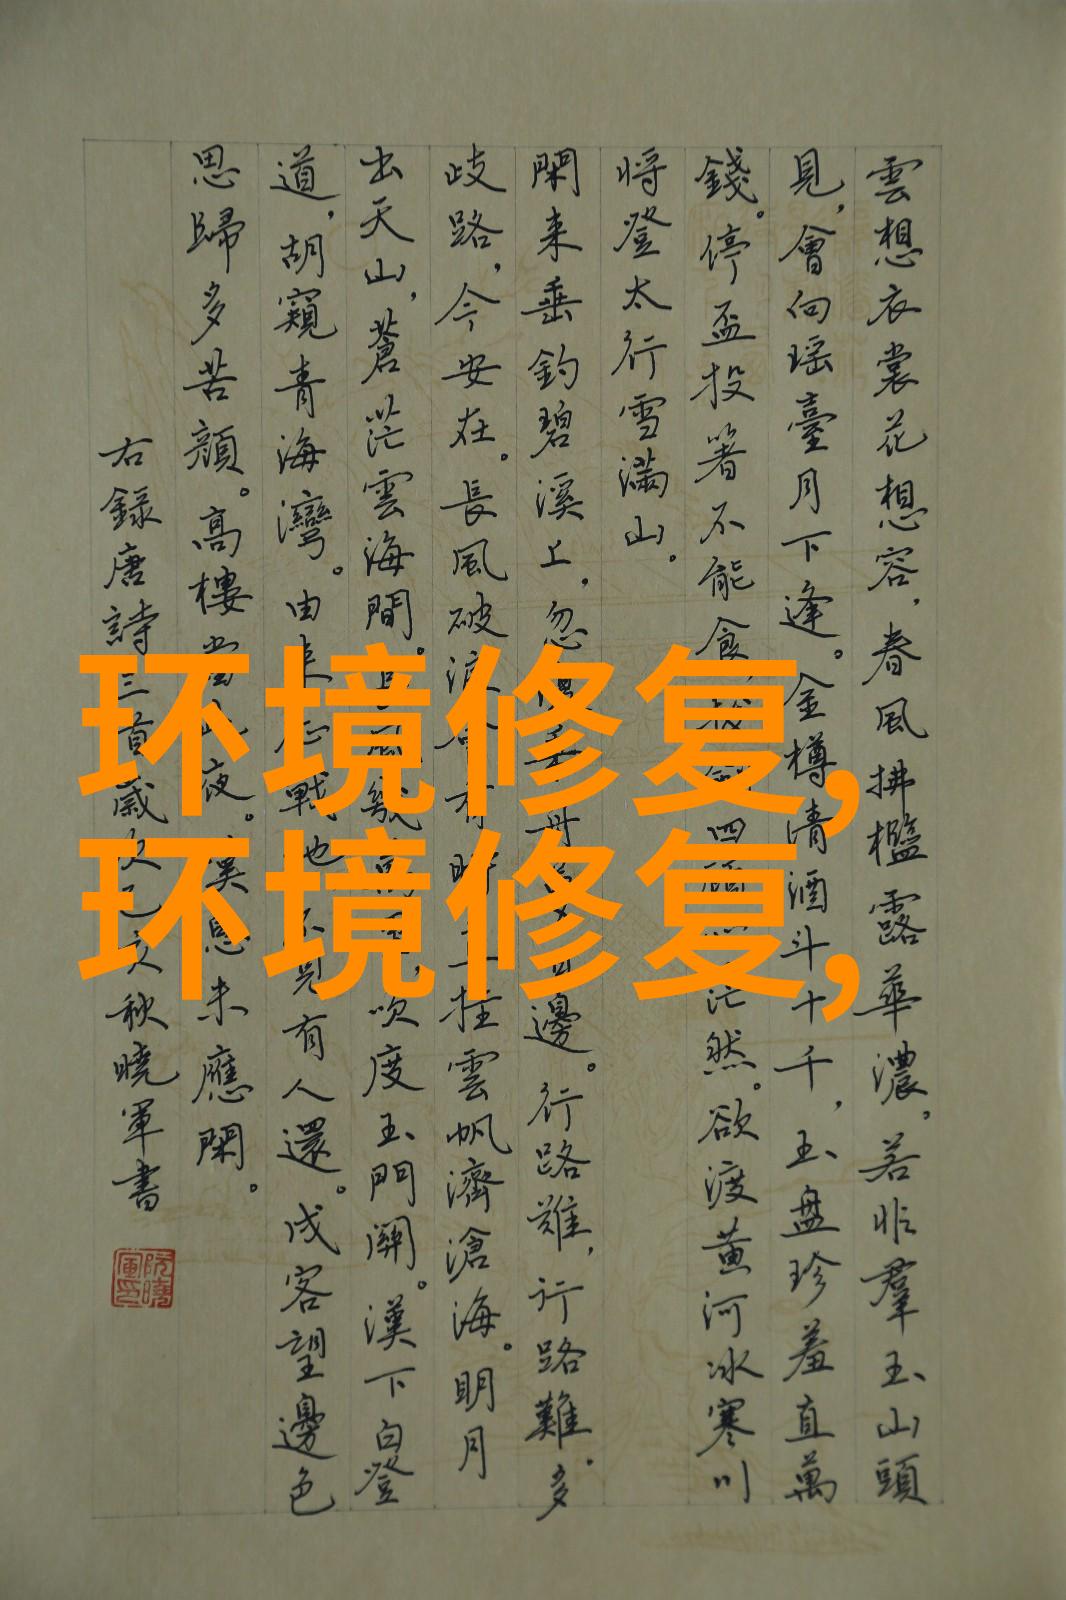 雲想衣裳花想容，春風拂檻露華濃。若非羣玉山頭
見，會向瑶臺月下逢。金樽清酒斗十千，玉盘珍羞直萬
錢。停盃投箸不能食四茫然。欲渡黄河冰寒川
将登太行雪满山。
閑来垂釣碧溪上，忽邊。行路難，行路難。多
歧路，今安在。長風破浪有時挂雲帆濟滄海。明月
出天山，蒼茫雲海間。風吹度玉門關。漢下白登
道，胡窺青海灣。由来戰地不見有人還。戍客望邊色
思歸多苦顔。高樓當此夜。嘆息未應閑。
右録唐詩三首歲次己亥秋曉軍書
阮曉軍印
环境修复,
环境修复,